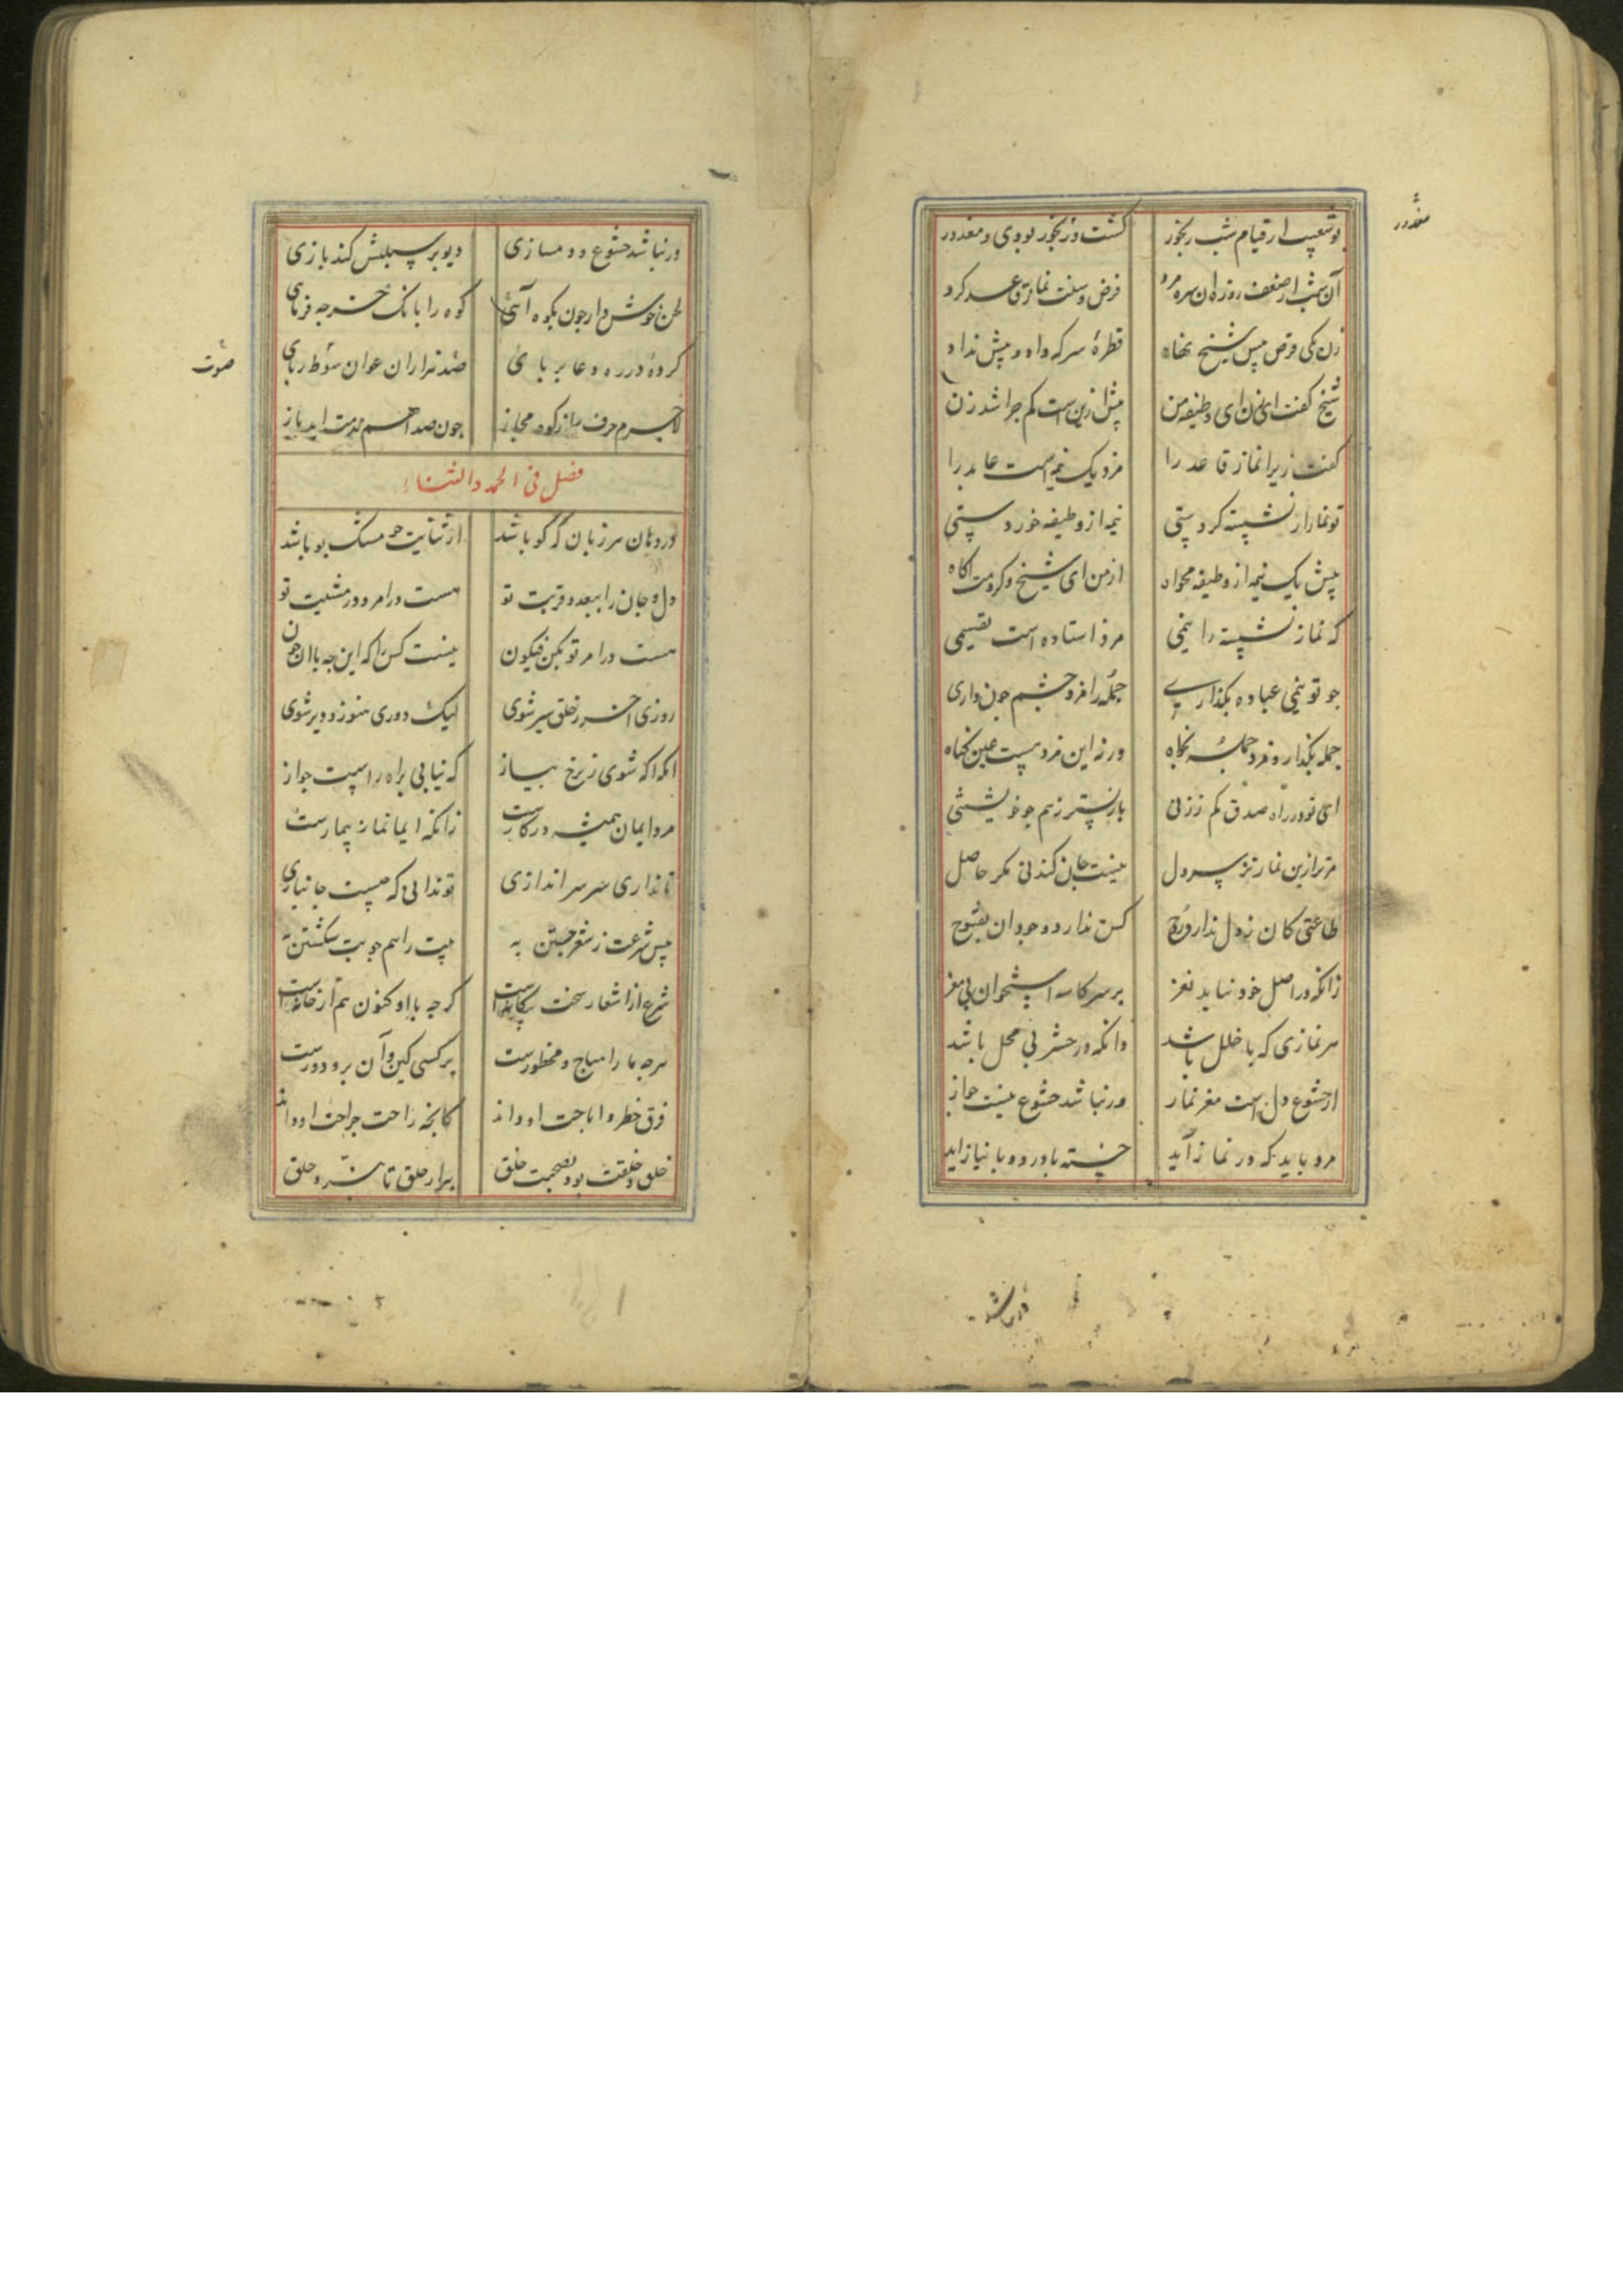 بوشعیب از قیام شب رنجور گشت ور نجور بودی و معذور
معذور
آن شب از ضعف روزه آن سره مرد فرض و سنت نماز قاعد کرد
زن یکی قرص پیش شیخ نهاد قطرهٔ سرکه داد و بیش نداد
شیخ گفت ای زن ای وظیفه من بیش ازین است کم چرا شد زن
گفت زیرا نماز قاعد را مزد یک نیم است عابد را
تو نماز ار نشسته کردستی نیمه از وظیفه خوردستی
بیش یک نیمه از وظیفه مخواه از من ای شیخ و کردمت آکاه
که نماز نشسته را نیمی مزد استاده است تقسیمی
جو تو نیمی عباده بگذاری جمله را مزد چشم جون داری
جمله بگذار و مزد جمله بخواه ورنه این مزد هست عین گناه
ای تو در راه صدق کم ز زنی باز پستر ز هم جو خویشتنی
مر ترا زین نماز نز سر دل نیست جان کندنی مکر حاصل
طاعتی کان ز دل ندارد روح کس ندارد وجود آن بفتوح
زانکه در اصل خود نیاید نغز بر سر کاسه استخوان بی مغز
هر نمازی که با خلل باشد دانکه در حشر بی محل باشد
از خشوع دل است مغز نماز ور نباشد خشوع نیست جواز
مرد باید که در نماز آید خسته با درد و با نیاز آید
ور نباشد خشوع و دمسازی دیو بر سبلتش کند بازی
لحن خوش دار جون بکوه آئی کوه را بانک خر جه فرمای
کرده در ره دعا بر بائی صد هزاران عوان سوط ربای
صوت
لاجرم حرف باز کوه مجاز جون صدا هم بدست آید باز
فصل فی الحمد والثناء
در دهان هر زبان که کو باشد از ثنایت جو مسک بو باشد
دل و جان را ببعد و قربت تو هست در امر و در مشیت تو
هست در امر تو بکن فیکون نیست کس را که این جه با آن جون
روزی آخر ز خلق سیر شوی لیک دوری هنوز و دیر شوی
آنکه آکه شوی ز نرخ پیاز که نیابی براه راست جواز
مرد ایمان همیشه در کارست زانکه ایما نماز بیمارست
تا نداری سر سر اندازی تو ندانی که جیست جانبازی
پس شرعت ز شعر جستن به بیت را هم جو بت شکستن به
شرع از اشعار سخت بیکانه است کر جه با او کنون هم از خانه است
هر جه ما را مباح و محظورست بر کسی کین و آن برو دورست
فرق خطر و اباحت او داند کانجه راحت جراحت او داند
خلق و خلقت بود بصحبت خلق